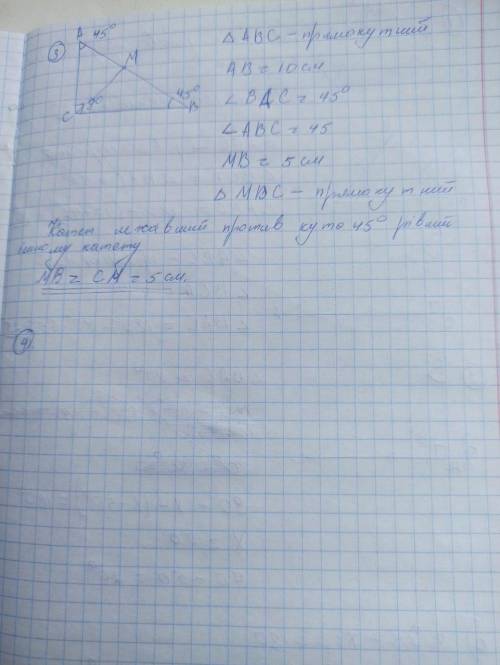 3
A 45°
M
45°
C 45° B
△ ABC - прямокутний
AB = 10 см
∠ BAC = 45°
∠ ABC = 45
MB = 5 см
△ MBC - прямокутний
Катет лежавший против кута 45° рівний
іншому катету
MB = CM = 5 см.
4